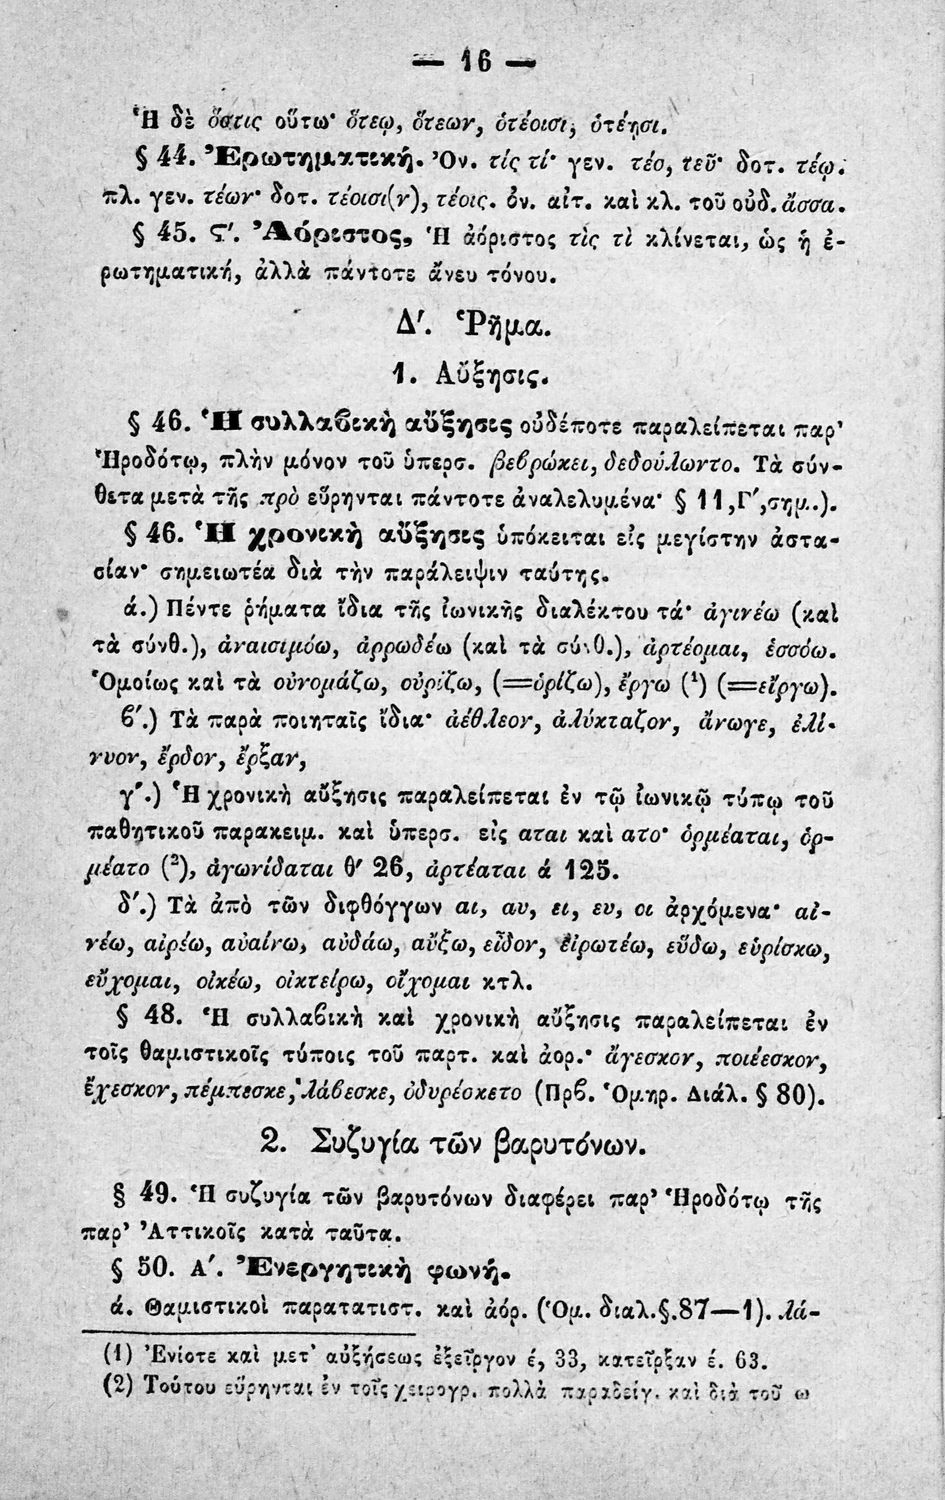 — 16 —
Ἡ δὲ ὅστις οὕτω· ὅτεῳ, ὅτεων, ὁτέοισι, ὁτέῃσι.
§ 44. Ἐρωτηματική. Ὀν. τίς τί· γεν. τέο, τεῦ· δοτ. τέῳ.
πλ. γεν. τέων· δοτ. τέοισι(ν), τέοις. ὀν. αἰτ. καὶ κλ. τοῦ οὐδ. ἄσσα.
§ 45. Ϛ′. Ἀόριστος, Ἡ ἀόριστος τὶς τὶ κλίνεται, ὡς ἡ ἐ-
ρωτηματική, ἀλλὰ πάντοτε ἄνευ τόνου.
Δ′. Ῥῆμα.
1. Αὔξησις.
§ 46. Ἡ συλλαϐικὴ αὔξησις οὐδέποτε παραλείπεται παρ’
Ἡροδότῳ, πλὴν μόνον τοῦ ὑπερσ. βεϐρώκει, δεδούλωντο. Τὰ σύν-
θετα μετὰ τῆς πρὸ εὕρηνται πάντοτε ἀναλελυμένα· § 11,Γ′,σημ..).
§ 46. Ἡ χρονικὴ αὔξησις ὑπόκειται εἰς μεγίστην ἀστα-
σίαν· σημειωτέα διὰ τὴν παράλειψιν ταύτης.
ά.) Πέντε ῥήματα ἴδια τῆς ἰωνικῆς διαλέκτου τά· ἀγινέω (καὶ
τὰ σύνθ.), ἀναισιμόω, ἀρρωδέω (καὶ τὰ σύνθ.), ἀρτέομαι, ἑσσόω.
Ὁμοίως καὶ τὰ οὐνομάζω, οὐρίζω, (=ὁρίζω), ἔργω (¹) (=εἴργω).
ϐ′.) Τὰ παρὰ ποιηταῖς ἴδια· ἀέθλεον, ἀλύκταζον, ἄνωγε, ἐλί-
νυον, ἔρδον, ἔρξαν,
γ′.) Ἡ χρονικὴ αὔξησις παραλείπεται ἐν τῷ ἰωνικῷ τύπῳ τοῦ
παθητικοῦ παρακειμ. καὶ ὑπερσ. εἰς αται καὶ ατο· ὁρμέαται, ὁρ-
μέατο (²), ἀγωνίδαται θ′ 26, ἀρτέαται ά 125.
δ′.) Τὰ ἀπὸ τῶν διφθόγγων αι, αυ, ει, ευ, οι ἀρχόμενα· αἰ-
νέω, αἱρέω, αὐαίνω, αὐδάω, αὔξω, εἶδον, εἰρωτέω, εὕδω, εὑρίσκω,
εὔχομαι, οἰκέω, οἰκτείρω, οἴχομαι κτλ.
§ 48. Ἡ συλλαϐικὴ καὶ χρονικὴ αὔξησις παραλείπεται ἐν
τοῖς θαμιστικοῖς τύποις τοῦ παρτ. καὶ ἀορ.· ἄγεσκον, ποιέεσκον,
ἔχεσκον, πέμπεσκε, λάϐεσκε, ὀδυρέσκετο (Πρϐ. Ὁμηρ. Διάλ. § 80).
2. Συζυγία τῶν βαρυτόνων.
§ 49. Ἡ συζυγία τῶν βαρυτόνων διαφέρει παρ’ Ἡροδότῳ τῆς
παρ’ Ἀττικοῖς κατὰ ταῦτα.
§ 50. Α′. Ἐνεργητικὴ φωνή.
ά. Θαμιστικοὶ παρατατιστ. καὶ ἀόρ. (Ὁμ. διαλ.§.87—1). λά-
(1) Ἐνίοτε καὶ μετ’ αὐξήσεως ἐξεῖργον έ, 33, κατεῖρξαν έ. 63.
(2) Τούτου εὕρηνται ἐν τοῖς χειρογρ. πολλὰ παραδείγ. καὶ διὰ τοῦ ω